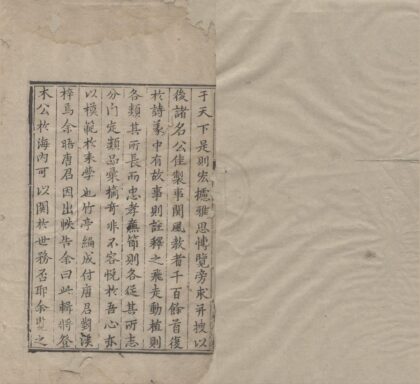 于天下是則宏攄雅思博覽旁求幷搜以
後諸名公佳製事關風敎者千百餘首復
於詩義中有故事則註釋之飛走動植則
各類其所長而忠孝廉節則各從其所志
分门定類品彙摛奇非不容悅於吾心亦
以模範於來學也竹亭編成付唐君對溪
梓焉余晤唐君因出帙告余曰此輯將登
木公於海內可以關於世務否耶余覽之